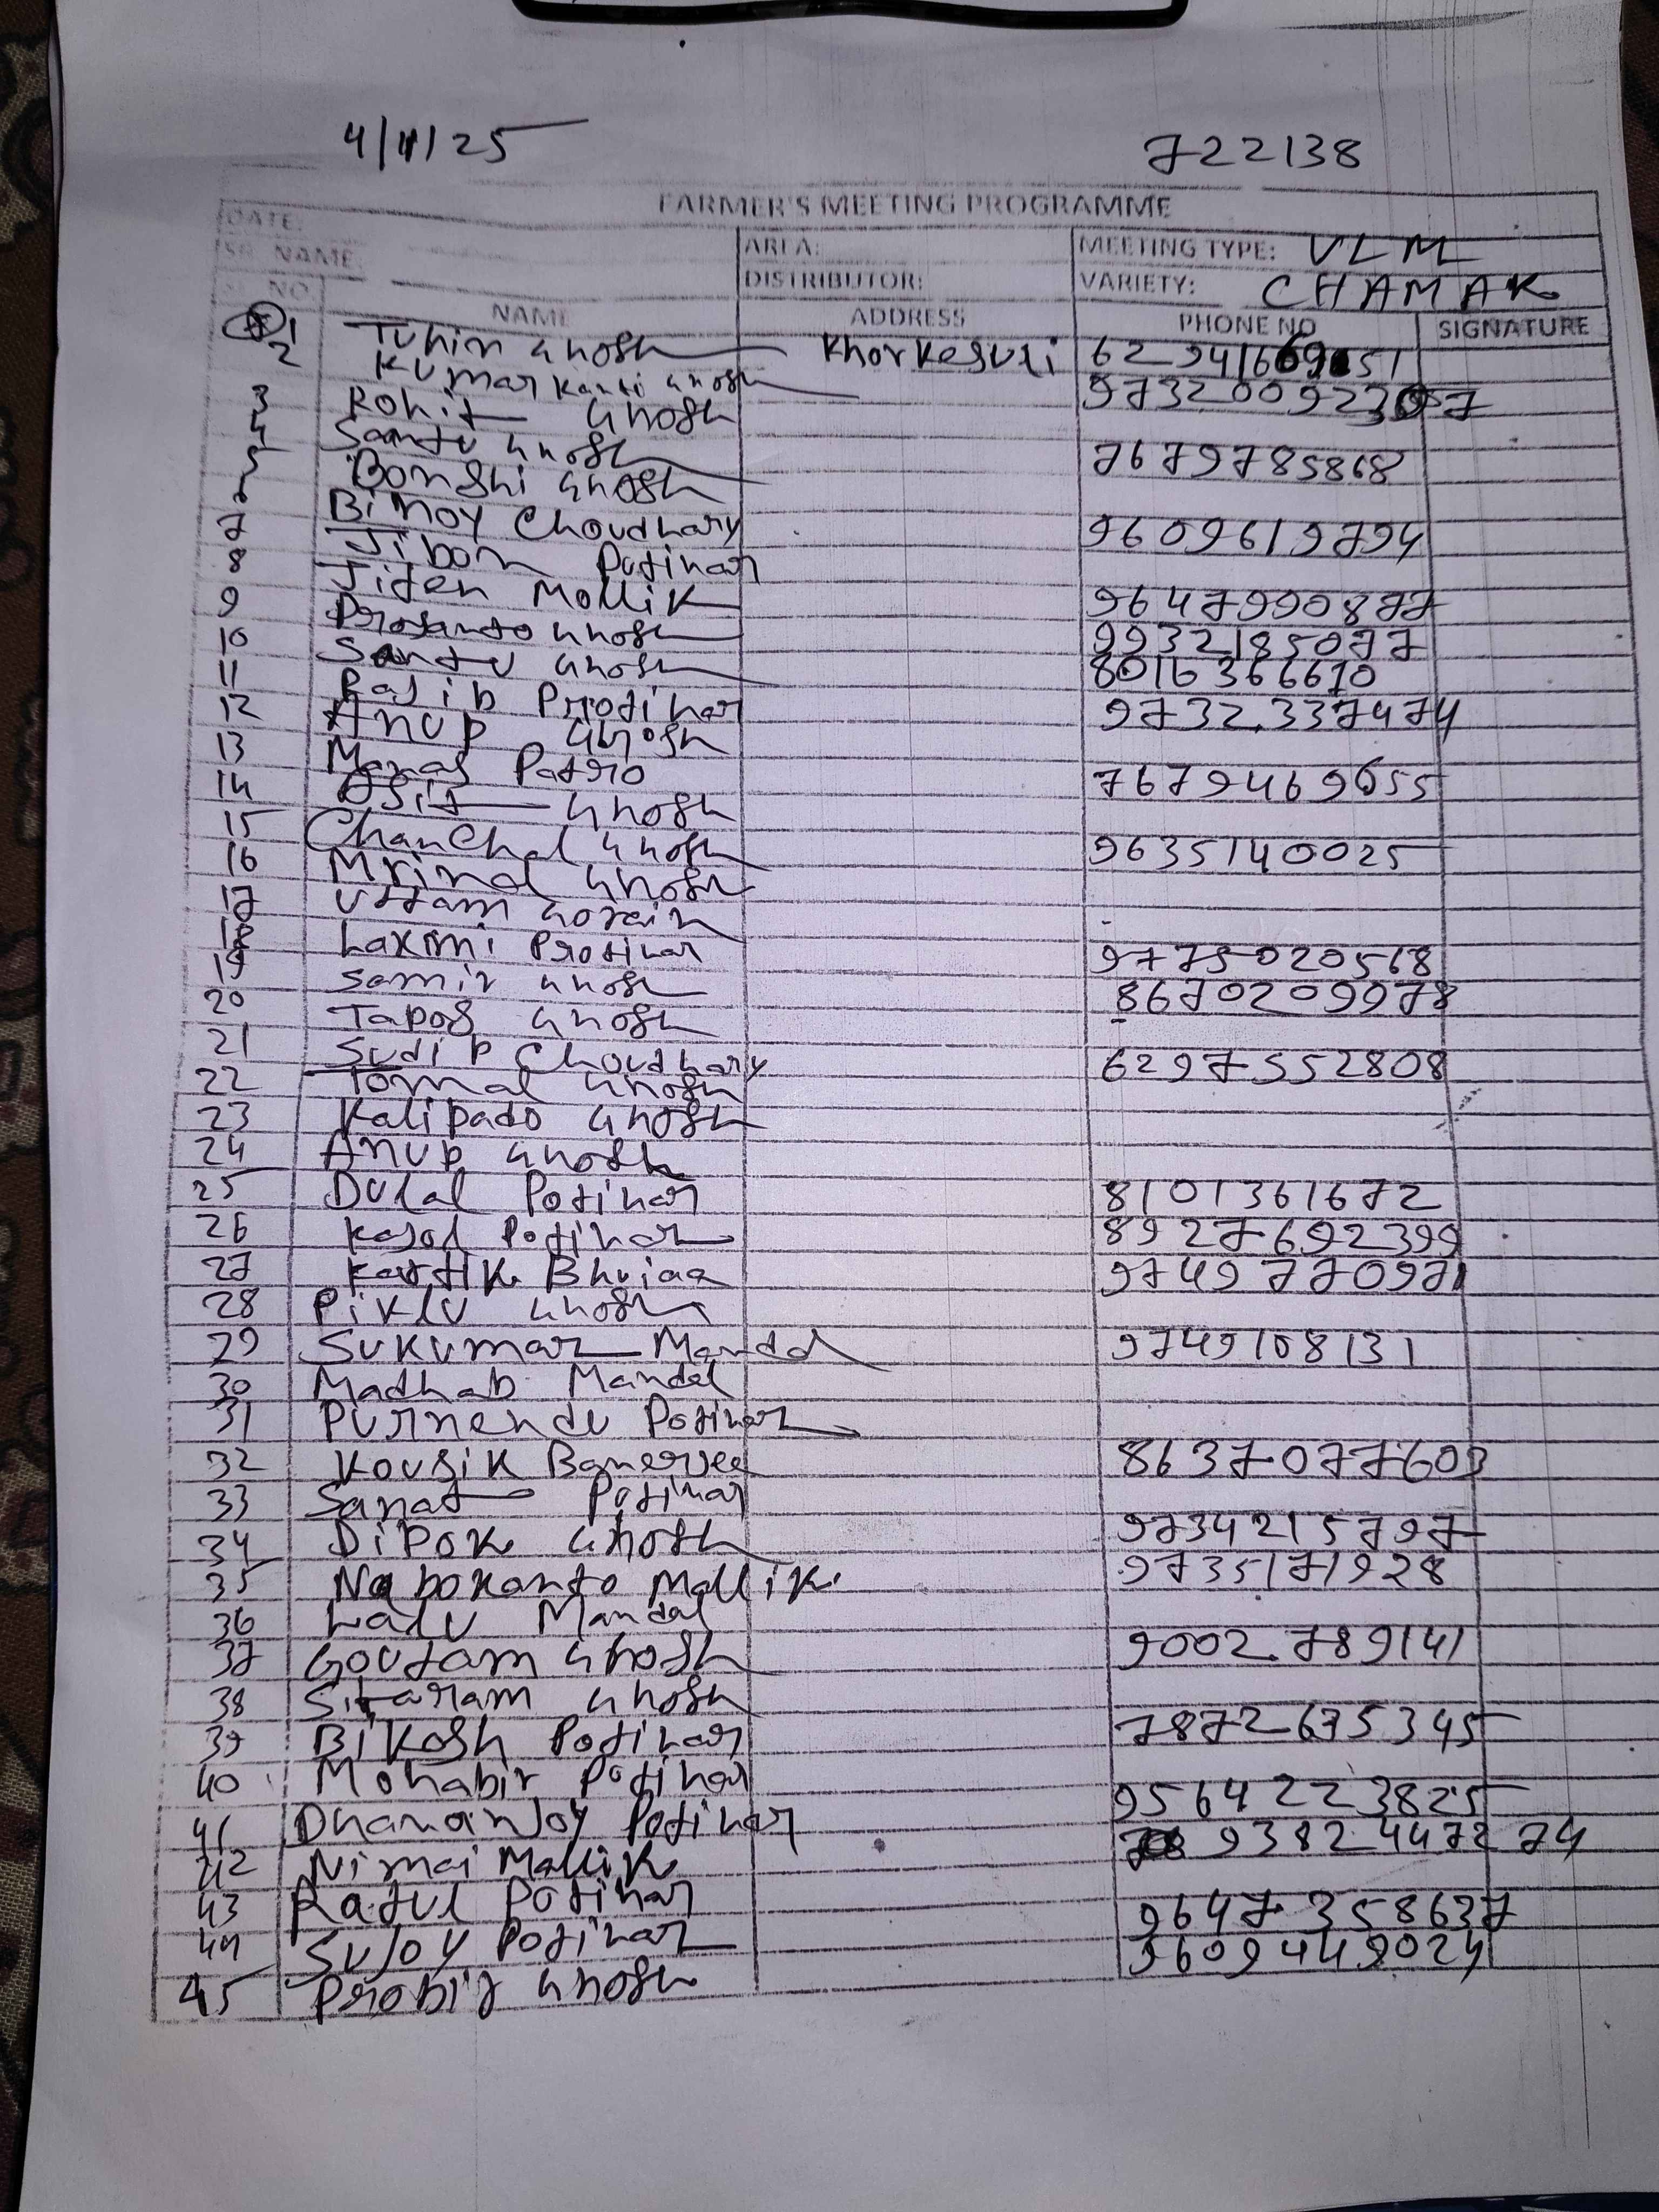 4/11/25 722138
FARMER'S MEETING PROGRAMME
DATE: AREA: MEETING TYPE: VLM
SR. NAME: DISTRIBUTOR: VARIETY: CHAMAK
SL. NO. NAME ADDRESS PHONE NO SIGNATURE
1 Tuhin Ghosh Khorkesuli
2 Kumar Kanti Ghosh
3 Rohit Ghosh
4 Santu Ghosh 7679785868
5 Bonshi Ghosh
6 Binoy Choudhary 9609619794
7 Jibon Potihar
8 Jiten Mollik 9647990877
9 Prosanto Ghosh 9932185077
10 Santu Ghosh 8016366610
11 Rajib Protihar 9732337474
12 Anup Ghosh
13 Manas Patro 7679469655
14 Asit Ghosh
15 Chanchal Ghosh 9635140025
16 Mrinal Ghosh
17 Uttam Gorain
18 Laxmi Protihar 9775020568
19 Samir Ghosh 8670209978
20 Tapos Ghosh
21 Sudip Choudhary 6297552808
22 Tomal Ghosh
23 Kalipado Ghosh
24 Anup Ghosh
25 Dulal Potihar 8101361672
26 Kajol Potihar 8927692399
27 Kartik Bhuiaa 9749770971
28 Piklu Ghosh
29 Sukumar Mandal 9749108131
30 Madhab Mandal
31 Purnendu Potihar
32 Kousik Banerjee 8637077603
33 Sanat Potihar
34 Dipok Ghosh 9734215797
35 Nabokanto Mallik 9735171928
36 Lalu Mandal
37 Goutam Ghosh 9002789141
38 Sitaram Ghosh
39 Bikash Potihar 7872675345
40 Mohabir Potihar
41 Dhananjoy Potihar 9564223825
42 Nimai Mallik
43 Ratul Potihar 9647358637
44 Sujoy Potihar 9609449024
45 Probir Ghosh